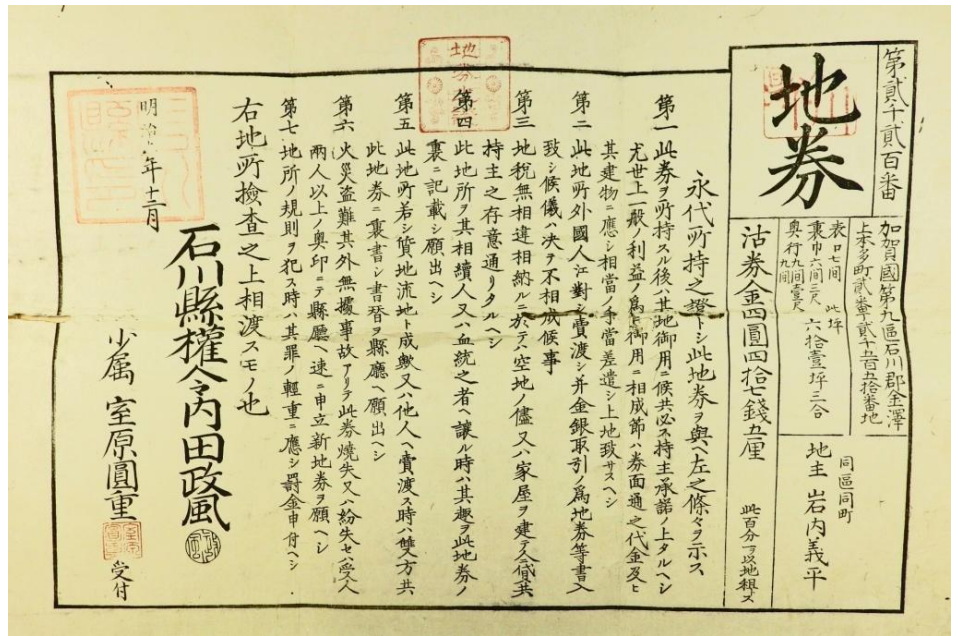 第貳千貳百番
地券
加賀國第九區石川郡金澤
上本多町貳番貳千五百五拾番地
表口七間
裏巾六間三尺
奥行九間壹尺
九間
此坪
六拾壹坪三合
沽券金四圓四拾七錢五厘
同區同町
地主 岩内義平
此百分ヲ以地租ス
永代所持之證トシ此地券ヲ與ヘ左之條々ヲ示ス
第一 此券ヲ所持スル後ハ其地御用ニ候共必ス持主承諾ノ上タルヘシ
尤世上一般ノ利益ノ為上御用ニ相成節ハ券面通之代金及ヒ
其建物ニ應シ相當ノ手當差遣シ上地致サスヘシ
第二 此地所外國人江對シ賣渡シ并金銀取引ノ為地券等書入
致シ候儀ハ決ヲ不相成候事
第三 地税無相違相納ルニ於テハ空地ノ儘又ハ家屋ヲ建テ人ニ貸共
持主之存意通リタルヘシ
第四 此地所ヲ其相續人又ハ血統之者ヘ讓ル時ハ其趣ヲ此地券ノ
裏ニ記載シ願出ヘシ
第五 此地所若シ質地流地ト成歟又ハ他人ヘ賣渡ス時ハ雙方共
此地券ニ裏書シ書替ヲ縣廳ヘ願出ヘシ
第六 火災盜難其外無據事故アリテ此券燒失又ハ紛失セハ受人
兩人以上ノ奥印ニテ縣廳ヘ速ニ申立新地券ヲ願ヘシ
第七 地所ノ規則ヲ犯ス時ハ其罪ノ輕重ニ應シ罰金申付ヘシ
右地所撿查之上相渡スモノ也
明治 年十二月
石川縣權令内田政風
少属 室原圓重 受付